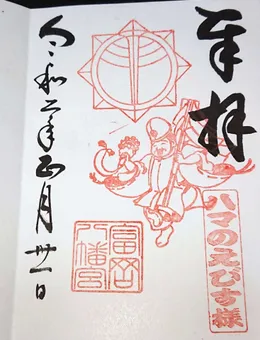 奉拝
ハマのえびす様
富岡八幡宮
令和二年正月廿一日